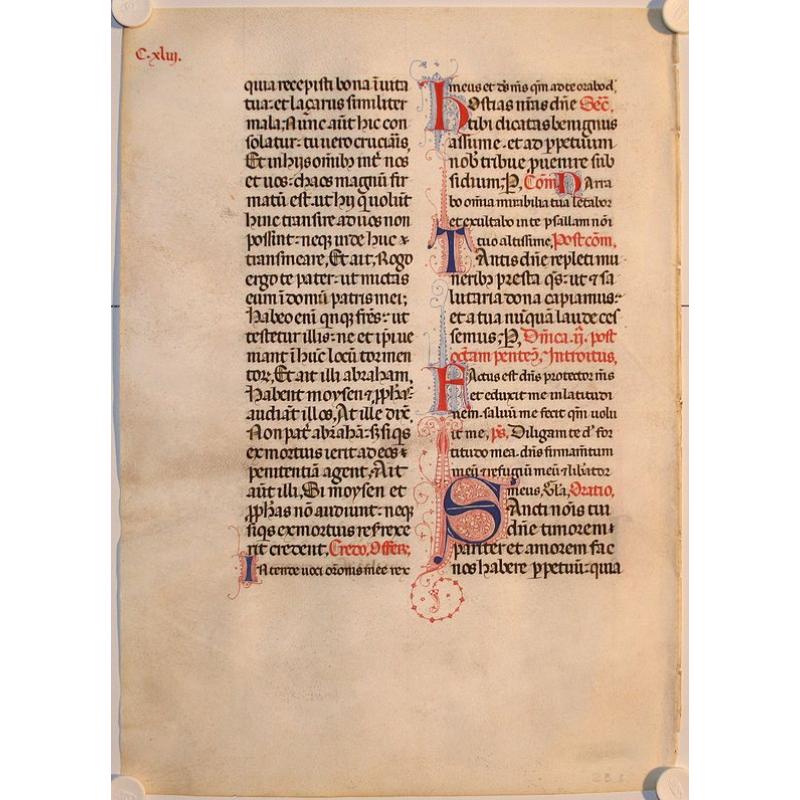 C·xliij.
quia recepisti bona ī uita
tua: et laçarus similiter
mala; Nunc aūt hic con
solatur: tu uero cruciaris,
Et in hijs oīnibȝ int̄ nos
et uos: chaos magnū fir
matū est. ut hij qui uolūt
hinc transire ad uos non
possint: neqȝ inde huc
transmeare, Et ait, Rogo
ergo te pater: ut mictas
eum ī domū patris mei;
habeo enī qnqȝ frēs: ut
testetur illis: ne et ipi ue
niant ī hūc locū tormen
torȝ, Et ait illi abraham,
habent moysen et ꝓphās
audiāt illos, At ille dix̄,
Non pat̄ abrahā: sȝ siqs
ex mortuis ierit ad eos
penitentiā agent, Ait
aūt illi, Si moysen et
ꝓphās non audiunt: neqȝ
siqs ex mortuis resrexe
rit credent, Credo, Offer̄,
Intende uoci orōnis mee rex
meus et ds̄ ms̄ qm̄ ad te orabo d
Hostias nr̄as dn̄e Sec̄,
tibi dicatas benignus
assume. et ad ꝑpetuum
nob̄ tribue ꝓuenire sub
sidium; P, Com̄ Narra
bo omīa mirabilia tua letabor
et exultabo in te psallam nōī
tuo altissime, Postcom̄,
Tantis dn̄e repleti mu
neribȝ presta qs: ut et sa
lutaria dona capiamus:
et a tua nunquā laude ces
semus; P, Dnīca ij. post
octam̄ pentec̄, Introitus,
Factus est dn̄s protector ms̄
et eduxit me in latitudi
nem. saluū me fecit qm̄ uolu
it me, ps̄, Diligam te d̄ for
titudo mea. dn̄s firmam̄tum
meū et refugiū meū et libator
meus, Gla, Oratio,
Sancti nōis tui
dn̄e timorem
pariter et amorem fac
nos habere ꝑpetuū: quia